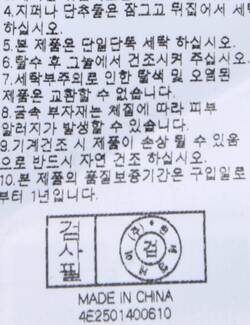 4.지퍼나 단추품은 잠그고 뒤집어서 세탁
하십시오.
5.본 제품은 단일단독 세탁 하십시오.
6.탈수 후 그늘에서 건조시켜 주십시오.
7.세탁부주의로 인한 탈색 및 오염된
제품은 교환할 수 없습니다.
8.금속 부자재는 체질에 따라 피부
알러지가 발생할 수 있습니다.
9.기계건조 시 제품이 손상 될 수 있음
으로 반드시 자연 건조 하십시오.
10.본 제품의 품질보증기간은 구입일로
부터 1년입니다.
검사필
(주)
검
MADE IN CHINA
4E2501400610